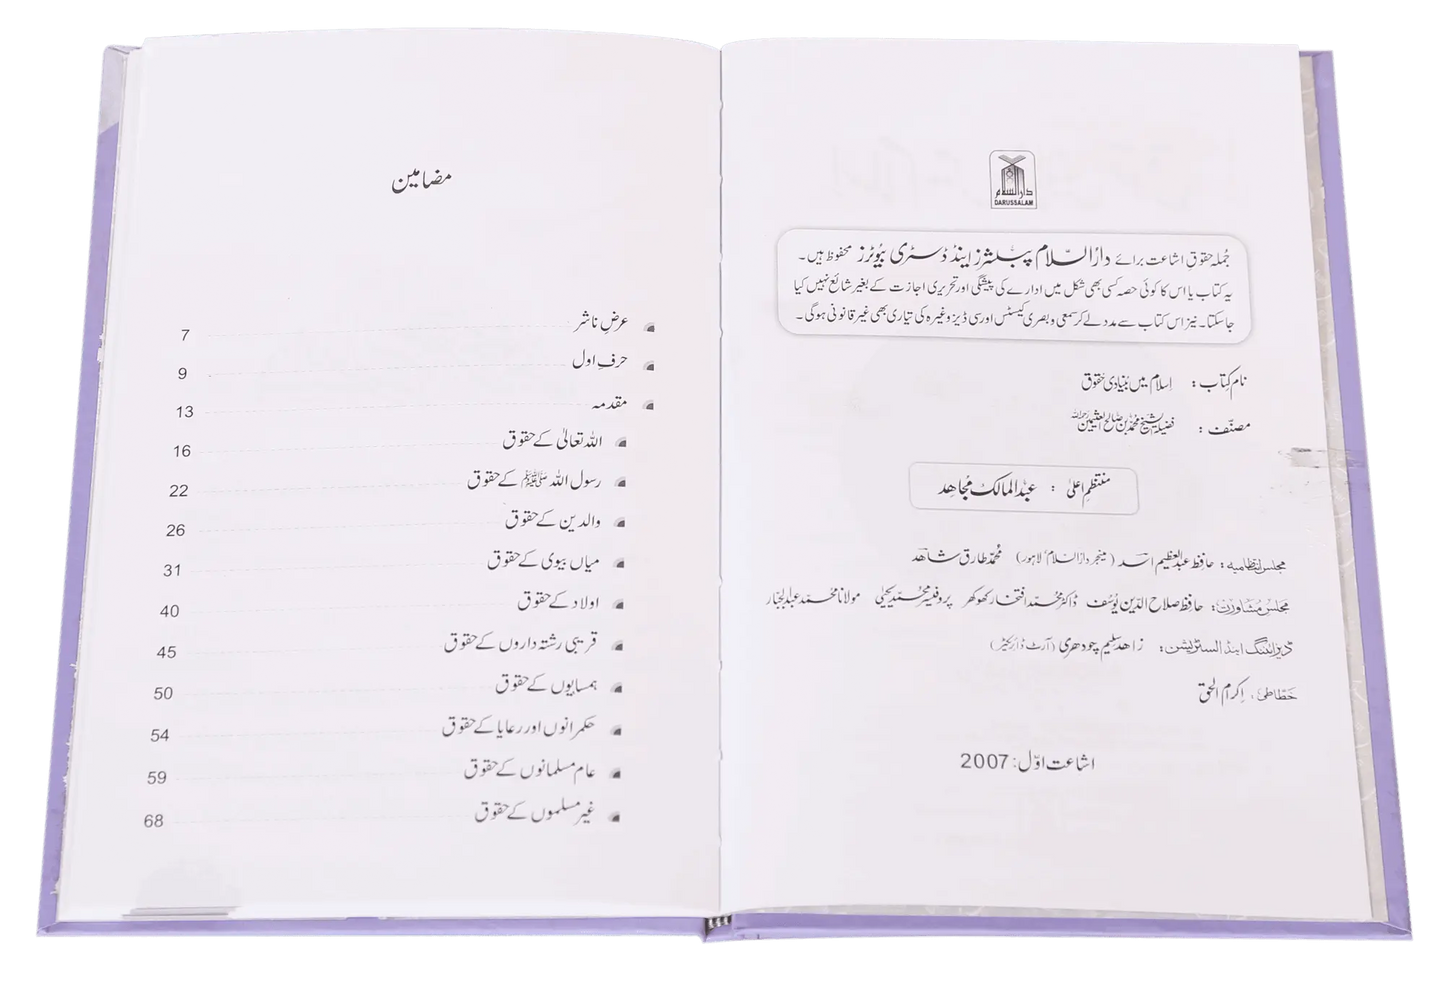 دارالسلام
DARUSSALAM
جُملہ حقوقِ اشاعت برائے دارُالسّلام پبلشرز اینڈ ڈسٹری بیُوٹرز محفوظ ہیں۔
یہ کتاب یا اس کا کوئی حصہ کسی بھی شکل میں ادارے کی پیشگی اور تحریری اجازت کے بغیر شائع نہیں کیا
جاسکتا۔ نیز اس کتاب سے مدد لے کر سمعی و بصری کیسٹس اور سی ڈیز وغیرہ کی تیاری بھی غیر قانونی ہوگی۔
نام کتاب : اِسلام میں بُنیادی حقوق
مصنّف : فضیلۃ الشیخ محمد بن صالح العثیمین رحمہ اللہ
منتظمِ اعلیٰ : عبدالمالک مُجاھد
مجلس انتظامیہ : حافظ عبدالعظیم اسد (مینجر دارالسلام لاہور) محمد طارق شاھد
مجلس مشاورت : حافظ صلاح الدّین یُوسُف ڈاکٹر محمد افتخار کھوکھر پروفیسر محمد یحییٰ مولانا محمد عبدالجبّار
ڈیزائننگ اینڈ السٹریشن : زاھد سلیم چودھری (آرٹ ڈائریکٹر)
خطاطی : اکرام الحق
اشاعت اوّل: 2007
مضامین
عرضِ ناشر 7
حرفِ اول 9
مقدمہ 13
اللہ تعالیٰ کے حقوق 16
رسول اللہ ﷺ کے حقوق 22
والدین کے حقوق 26
میاں بیوی کے حقوق 31
اولاد کے حقوق 40
قریبی رشتہ داروں کے حقوق 45
ہمسایوں کے حقوق 50
حکمرانوں اور رعایا کے حقوق 54
عام مسلمانوں کے حقوق 59
غیر مسلموں کے حقوق 68